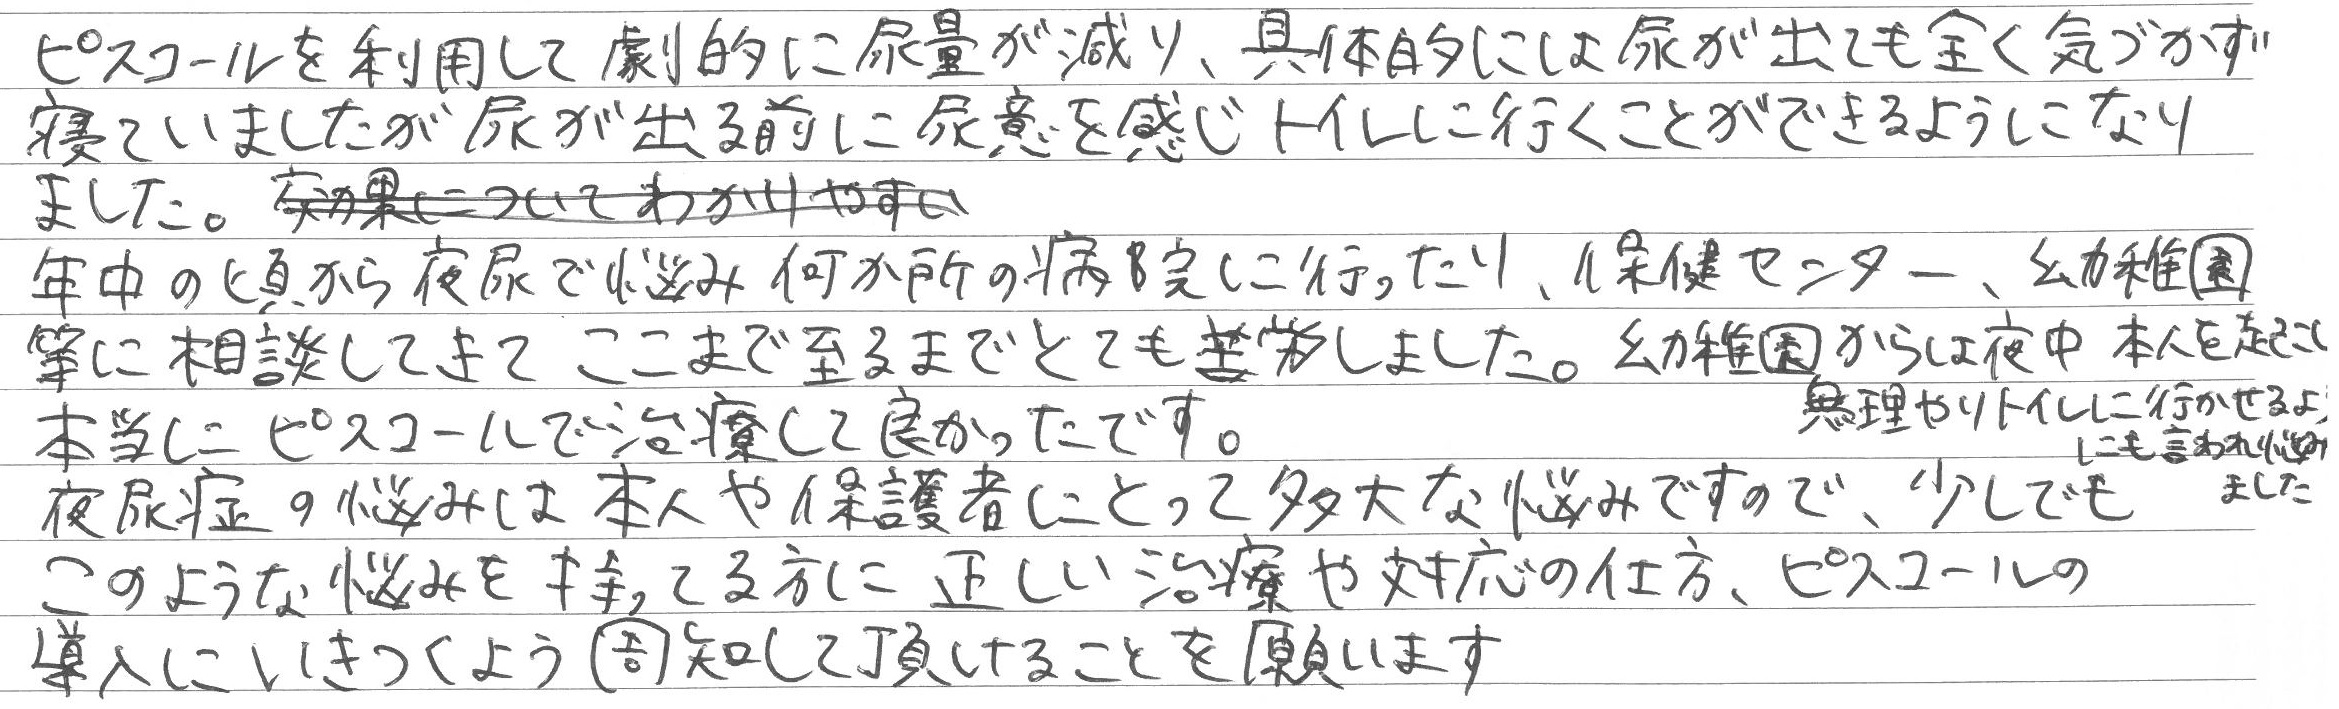 ピスコールを利用して劇的に尿量が減り、具体的には尿が出ても全く気づかず
寝ていましたが尿が出る前に尿意を感じトイレに行くことができるようになり
ました。効果についてわかりやすい
年中の頃から夜尿で悩み何か所の病院に行ったり、保健センター、幼稚園
等に相談してきてここまで至るまでとても苦労しました。幼稚園からは夜中本人を起こし
無理やりトイレに行かせるよう
にも言われ悩み
ました
本当にピスコールで治療して良かったです。
夜尿症の悩みは本人や保護者にとって多大な悩みですので、少しでも
このような悩みを持ってる方に正しい治療や対応の仕方、ピスコールの
導入にいきつくよう周知して頂けることを願います